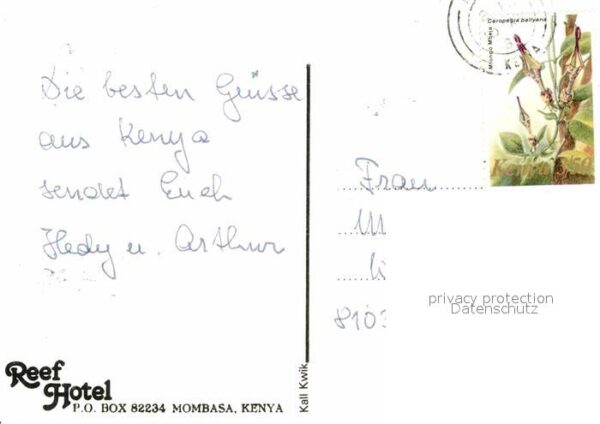 Die besten Grüsse
aus Kenya
sendet Euch
Hedy u. Arthur
Reef
Hotel
P.O. BOX 82234 MOMBASA, KENYA
Kall Kwik
Ceropegia ballyana
Kenya
Frau
M
8103
privacy protection
Datenschutz